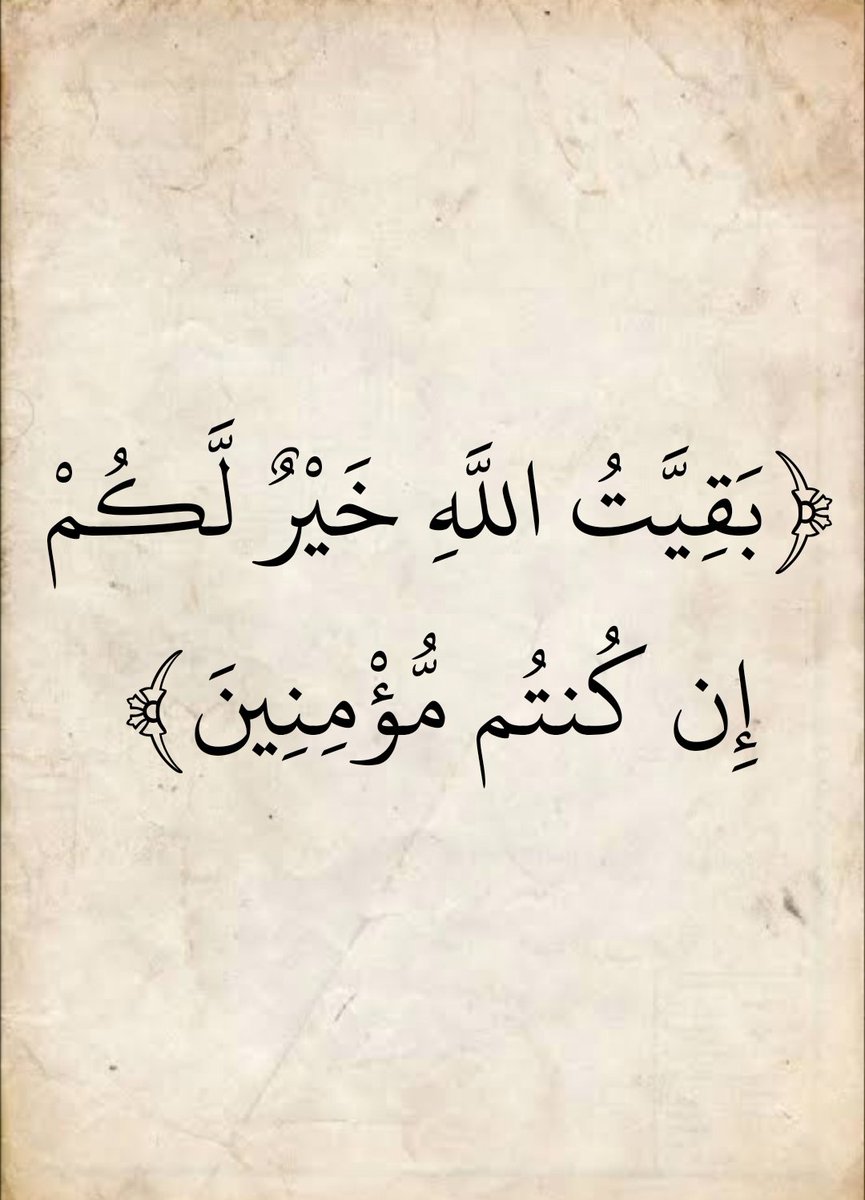 ﴿بَقِيَّتُ اللَّهِ خَيْرٌ لَّكُمْ
إِن كُنتُم مُّؤْمِنِينَ﴾